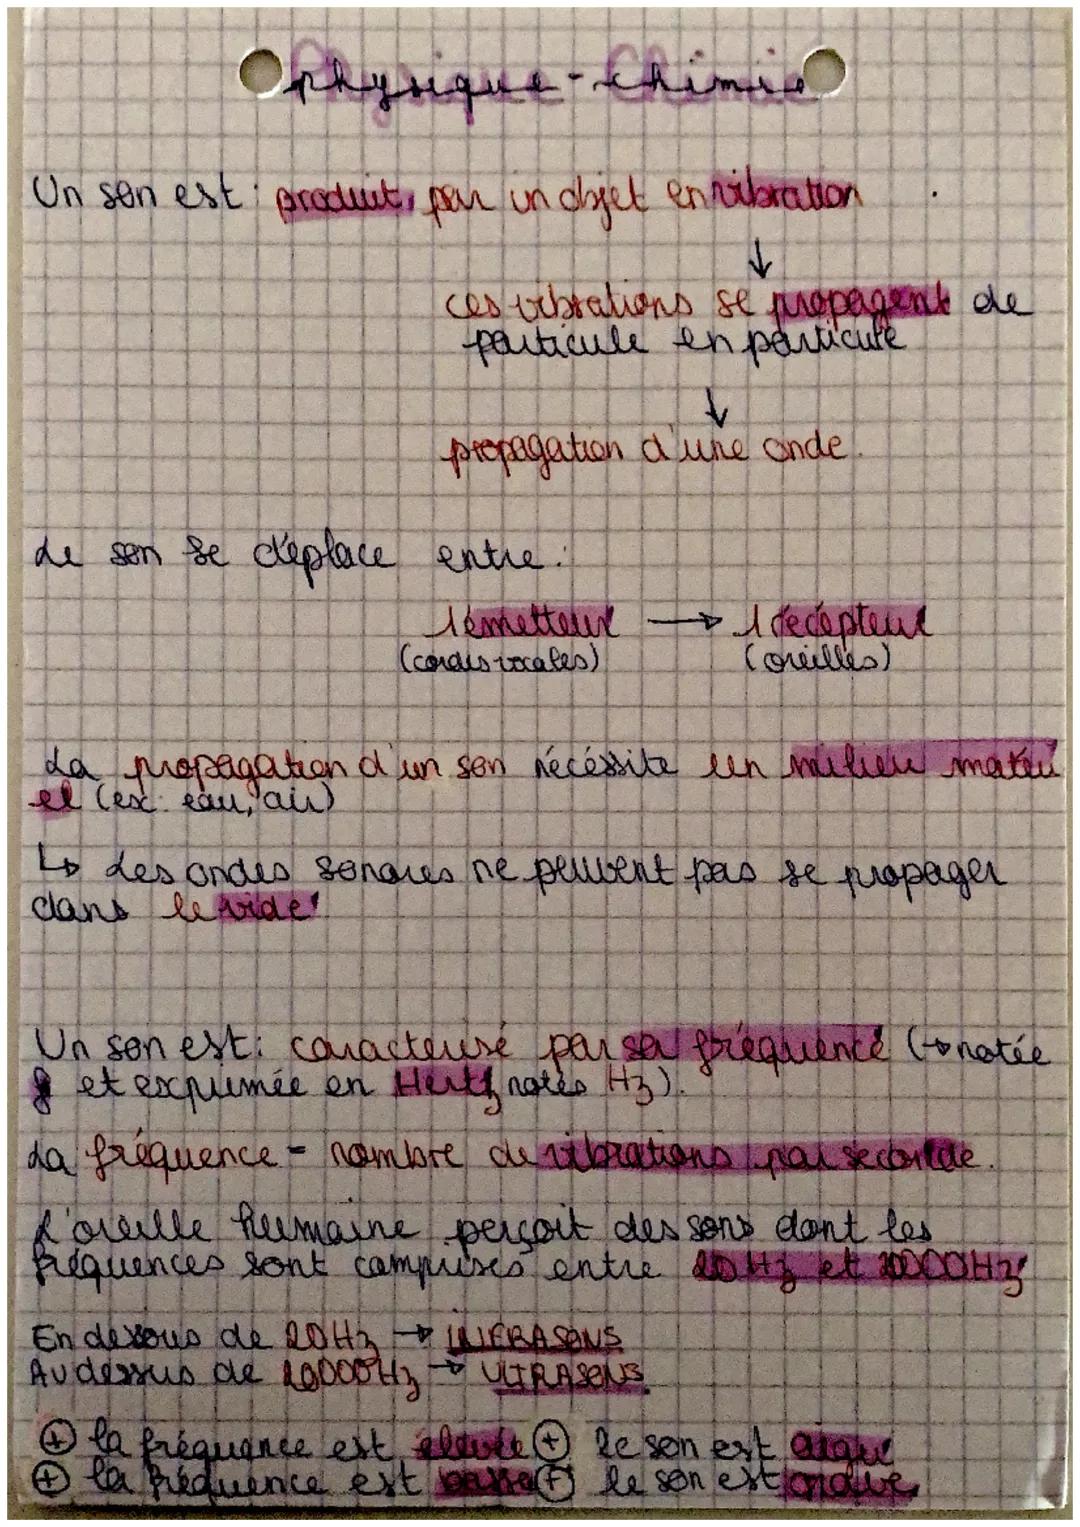 Physique - Chimie
Un son est : produit, par un objet en vibration
↓
ces vibrations se propagent de
particule en particule
↓
propagation d'une onde.
Le son se déplace entre :
1 émetteur → 1 récépteur
(cordes vocales) (oreilles)
La propagation d'un son nécéssite un milieu matéri
el (ex: eau, air)
↳ Les ondes sonores ne peuvent pas se propager
dans le vide
Un son est : caractérisé par sa fréquence (→ notée
f et exprimée en Hertz notés Hz).
La fréquence = nombre de vibrations par seconde.
L'oreille humaine perçoit des sons dont les
fréquences sont comprises entre 20 Hz et 20000Hz
En dessous de 20Hz → INFRASONS
Au dessus de 20000Hz → ULTRASONS.
⊕ la fréquence est élevée ⊕ le son est aigu
⊕ la fréquence est basse ⊕ le son est grave